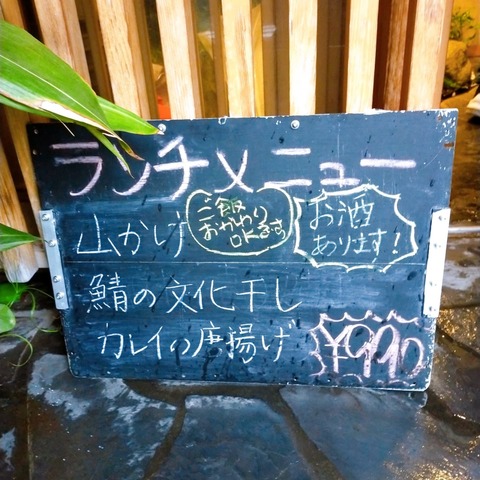 ランチメニュー
山かけ
ご飯
おかわり
OKです
お酒
あります!
鯖の文化干し
カレイの唐揚げ
¥990